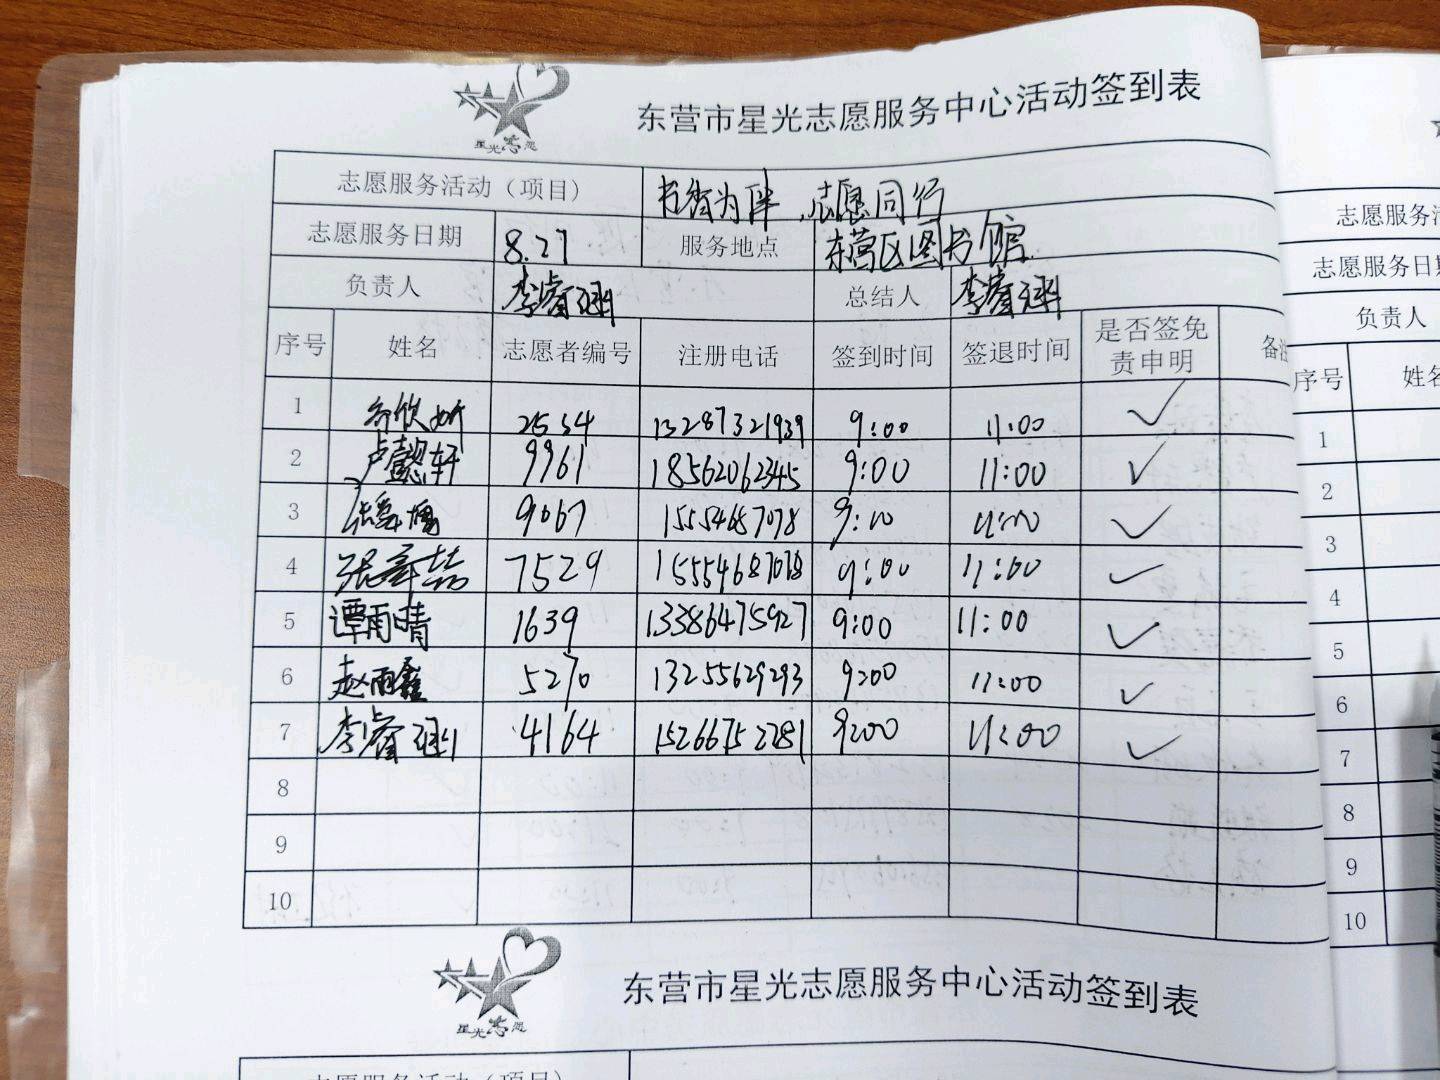 星光志愿
东营市星光志愿服务中心活动签到表
志愿服务活动（项目） 书香为伴，志愿同行
志愿服务日期 8.27 服务地点 东营区图书馆
负责人 李睿涵 总结人 李睿涵
序号 姓名 志愿者编号 注册电话 签到时间 签退时间 是否签免责申明 备注
1 2534 13287321939 9:00 11:00 ✓
2 卢懿轩 9961 18562062345 9:00 11:00 ✓
3 9067 15554687078 9:00 11:00 ✓
4 7529 15554687078 9:00 11:00 ✓
5 谭雨晴 1639 13386475927 9:00 11:00 ✓
6 赵雨鑫 5270 13255629293 9:00 11:00 ✓
7 李睿涵 4164 15266752781 9:00 11:00 ✓
8
9
10
星光志愿
东营市星光志愿服务中心活动签到表
志愿服务活动（项目）
志愿服务
志愿服务日期
负责人
序号 姓名
1
2
3
4
5
6
7
8
9
10